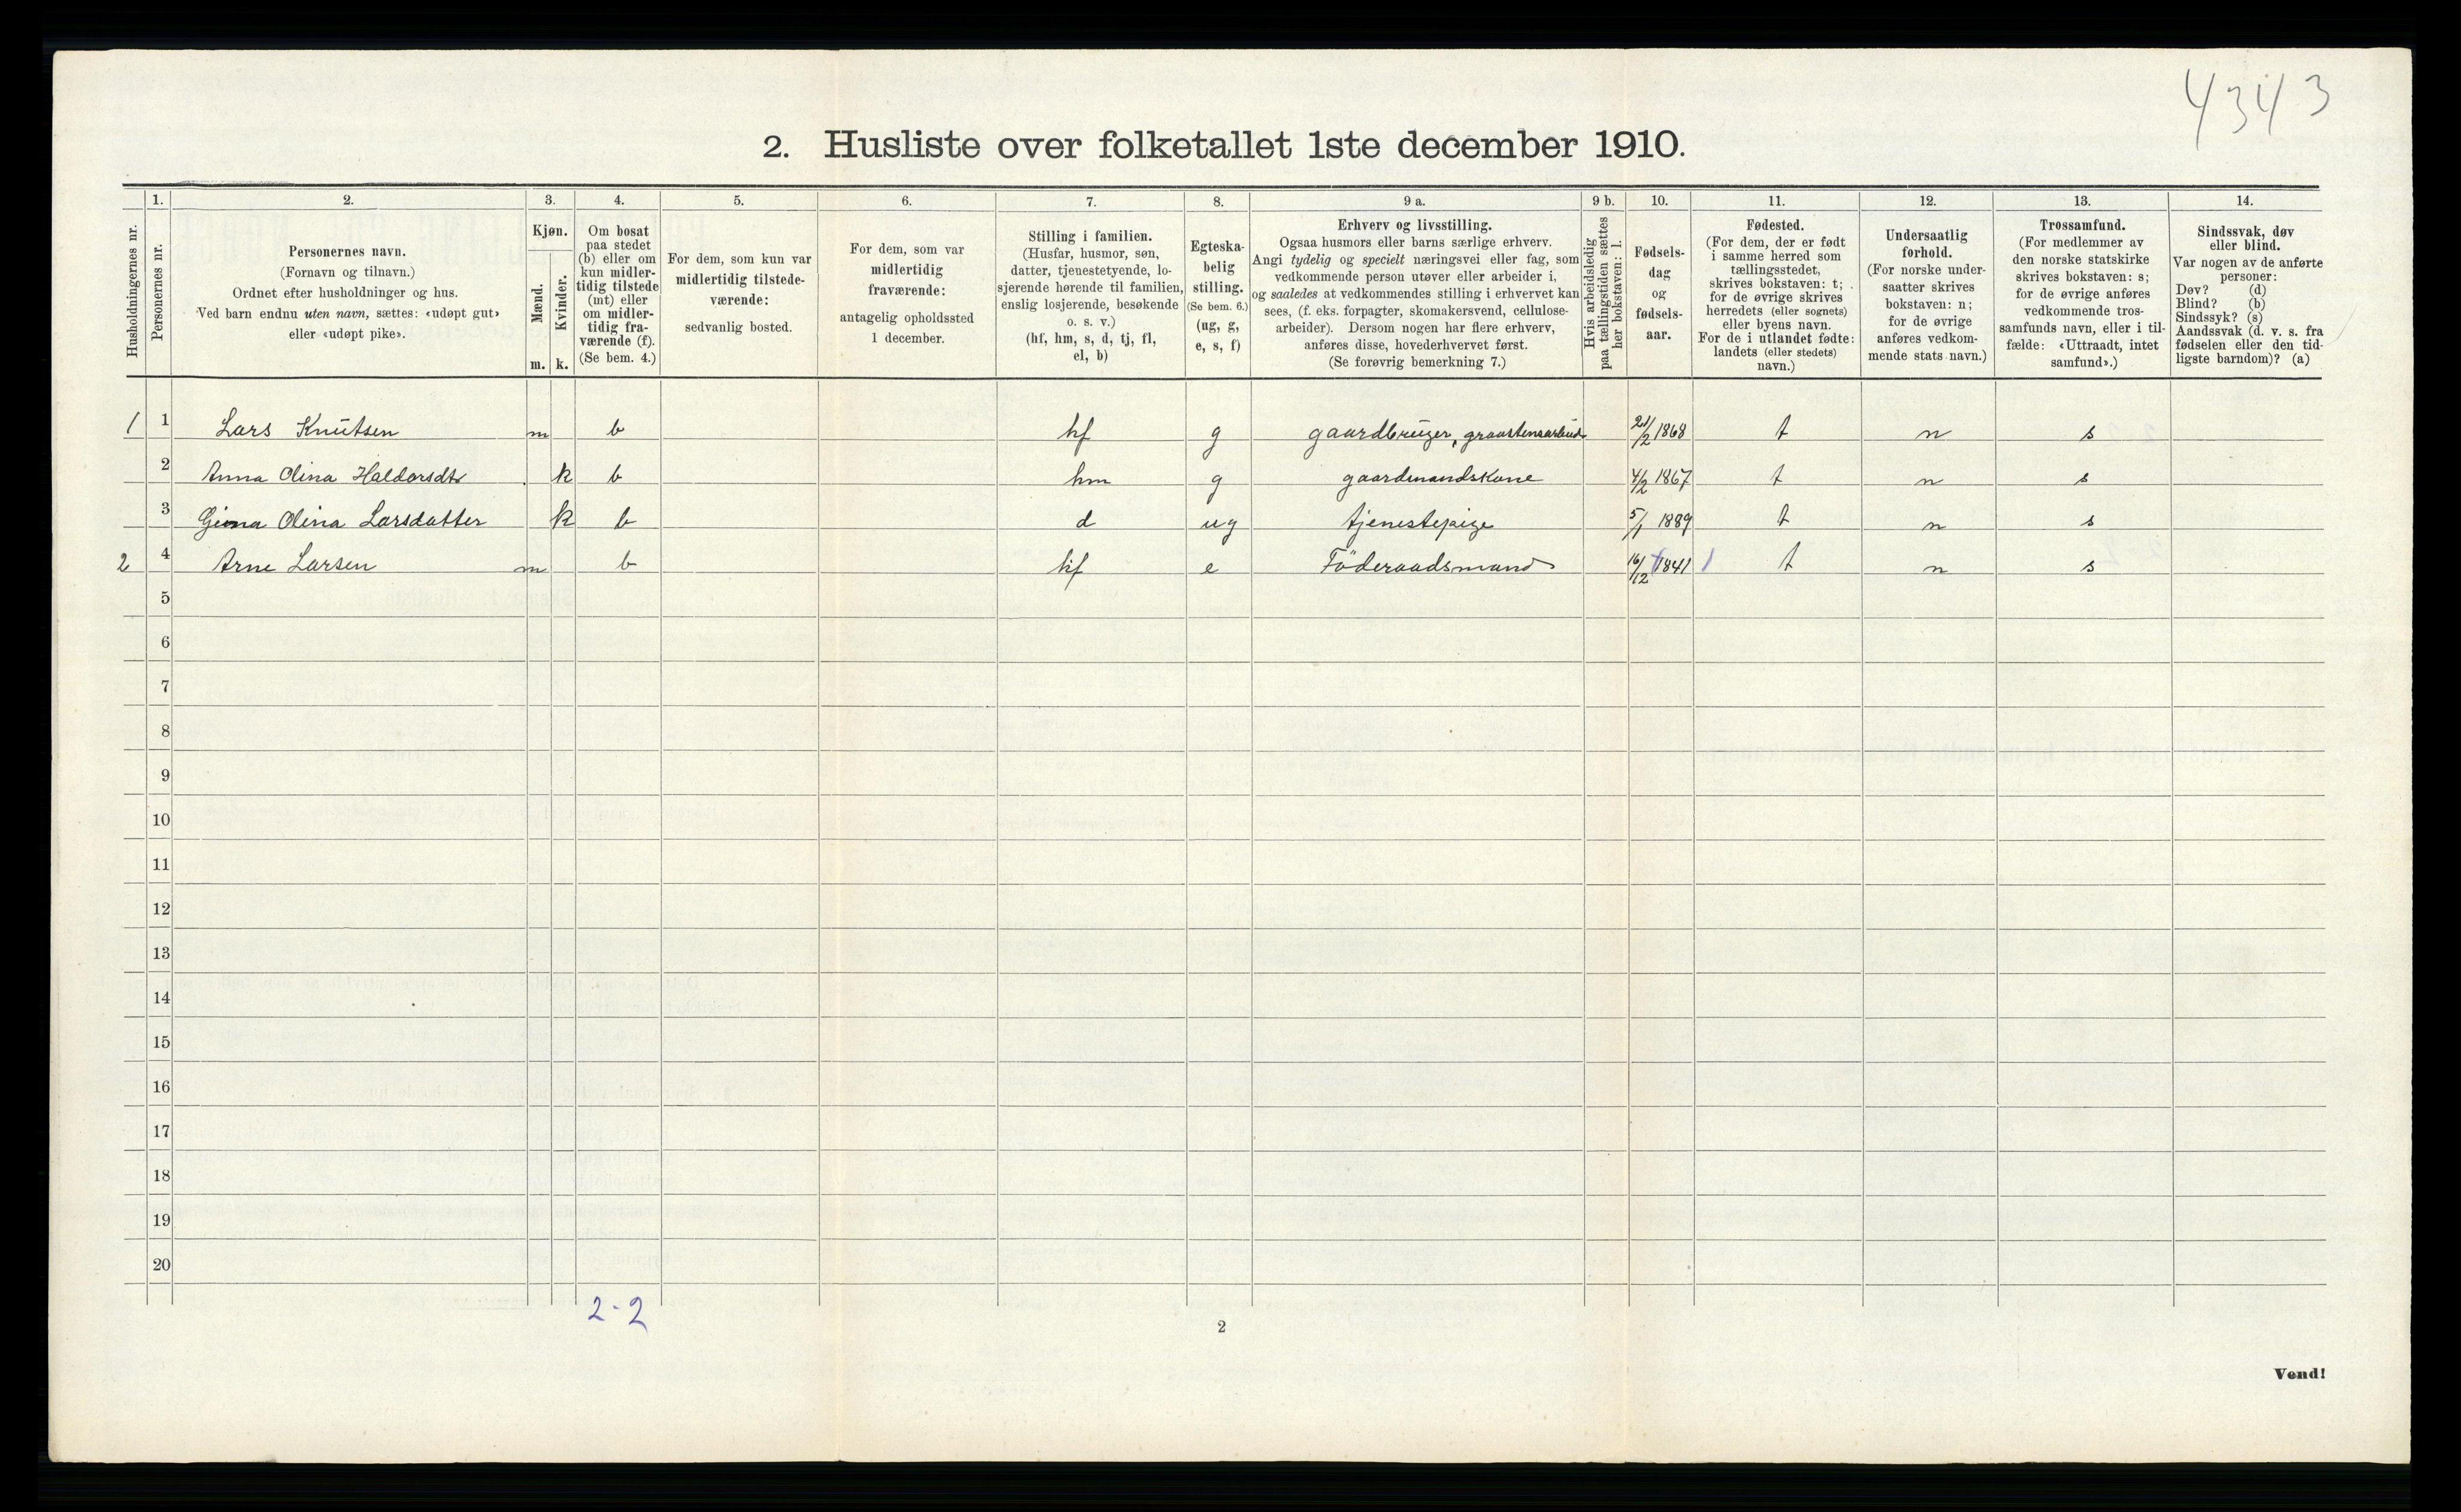 4343
2. Husliste over folketallet 1ste december 1910.
Husholdningernes nr.
1. Personernes nr.
2. Personernes navn.
(Fornavn og tilnavn.)
Ordnet efter husholdninger og hus.
Ved barn endnu uten navn, sættes: «udøpt gut»
eller «udøpt pike».
3. Kjøn.
Mænd. m.
Kvinder. k.
4. Om bosat
paa stedet
(b) eller om
kun midler-
tidig tilstede
(mt) eller
om midler-
tidig fra-
værende (f).
(Se bem. 4.)
5. For dem, som kun var
midlertidig tilstede-
værende:
sedvanlig bosted.
6. For dem, som var
midlertidig
fraværende:
antagelig opholdssted
1 december.
7. Stilling i familien.
(Husfar, husmor, søn,
datter, tjenestetyende, lo-
sjerende hørende til familien,
enslig losjerende, besøkende
o. s. v.)
(hf, hm, s, d, tj, fl,
el, b)
8. Egteska-
belig
stilling.
(Se bem. 6.)
(ug, g,
e, s, f)
9 a. Erhverv og livsstilling.
Ogsaa husmors eller barns særlige erhverv.
Angi tydelig og specielt næringsvei eller fag, som
vedkommende person utøver eller arbeider i,
og saaledes at vedkommendes stilling i erhvervet kan
sees, (f. eks. forpagter, skomakersvend, cellulose-
arbeider). Dersom nogen har flere erhverv,
anføres disse, hovederhvervet først.
(Se forøvrig bemerkning 7.)
9 b. Hvis arbeidsledig
paa tællingstiden sættes
her bokstaven: l.
10. Fødsels-
dag
og
fødsels-
aar.
11. Fødested.
(For dem, der er født
i samme herred som
tællingsstedet,
skrives bokstaven: t;
for de øvrige skrives
herredets (eller sognets)
eller byens navn.
For de i utlandet fødte:
landets (eller stedets)
navn.)
12. Undersaatlig
forhold.
(For norske under-
saatter skrives
bokstaven: n;
for de øvrige
anføres vedkom-
mende stats navn.)
13. Trossamfund.
(For medlemmer av
den norske statskirke
skrives bokstaven: s;
for de øvrige anføres
vedkommende tros-
samfunds navn, eller i til-
fælde: «Uttraadt, intet
samfund».)
14. Sindssvak, døv
eller blind.
Var nogen av de anførte
personer:
Døv? (d)
Blind? (b)
Sindssyk? (s)
Aandssvak (d. v. s. fra
fødselen eller den tid-
ligste barndom)? (a)
1 1 Lars Knutsen m b hf g gaardbruger, graastensarbeid. 21/2 1868 t n s
2 Anna Olina Haldorsdtr k b hm g gaardmandskone 4/2 1867 t n s
3 Gina Olina Larsdatter k b d ug tjenestepige 5/1 1889 t n s
2 4 Arne Larsen m b hf e Föderaadsmand 16/12 1841 t n s
5
6
7
8
9
10
11
12
13
14
15
16
17
18
19
20
2-2
2
Vend!